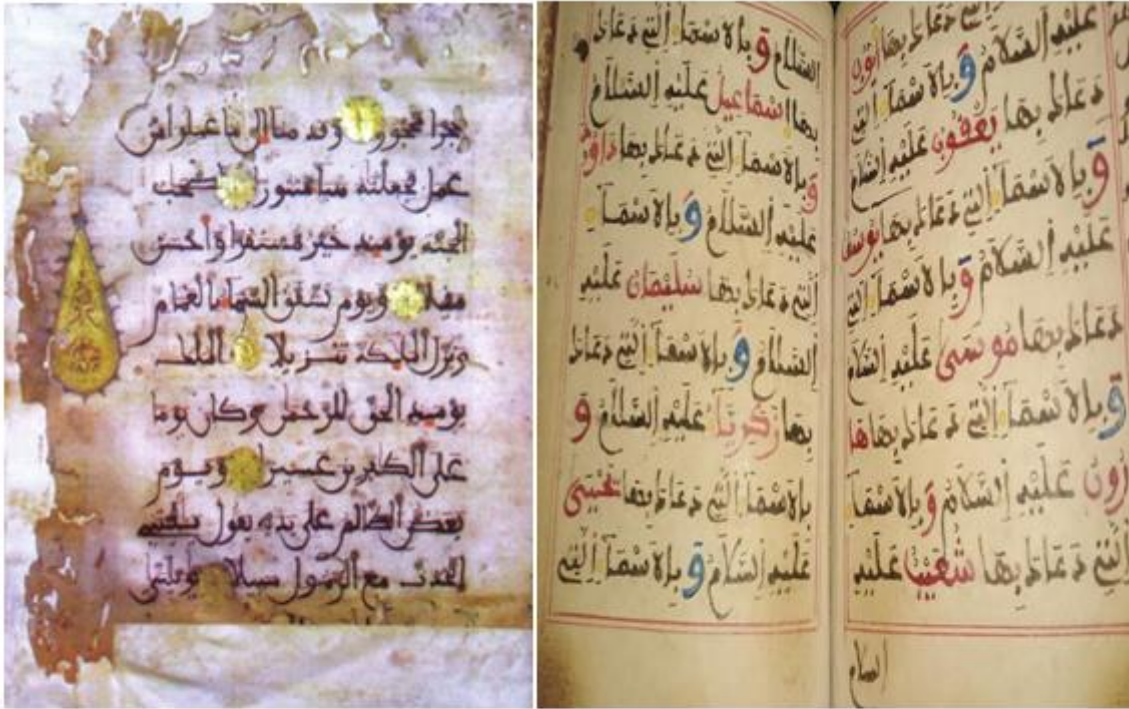 حجرا محجورا وقدمنا إلى ما عملوا من
عمل فجعلنه هباء منثورا أصحب
الجنة يوميذ خير مستقرا وأحسن
مقيلا ويوم تشقق السماء بالغمام
ونزل المليكة تنزيلا الملك
يوميذ الحق للرحمن وكان يوما
على الكفرين عسيرا ويوم
يعض الظالم على يديه يقول يليتني
اتخذت مع الرسول سبيلا يويلتى
التي دعاك بها
عليه السلام وبالاسماء التي
دعاك بها يعقوب عليه السلام
وبالاسماء التي دعاك بها يوسف
عليه السلام وبالاسماء التي
دعاك بها موسى عليه السلام
وبالاسماء التي دعاك بها ها
رون عليه السلام وبالاسماء
التي دعاك بها شعيب عليه
السلام
السلام وبالاسماء التي دعاك
بها اسماعيل عليه السلام
وبالاسماء التي دعاك بها داوود
عليه السلام وبالاسماء
التي دعاك بها سليمان عليه
السلام وبالاسماء التي دعاك
بها زكرياء عليه السلام و
بالاسماء التي دعاك بها يحيى
عليه السلام وبالاسماء التي